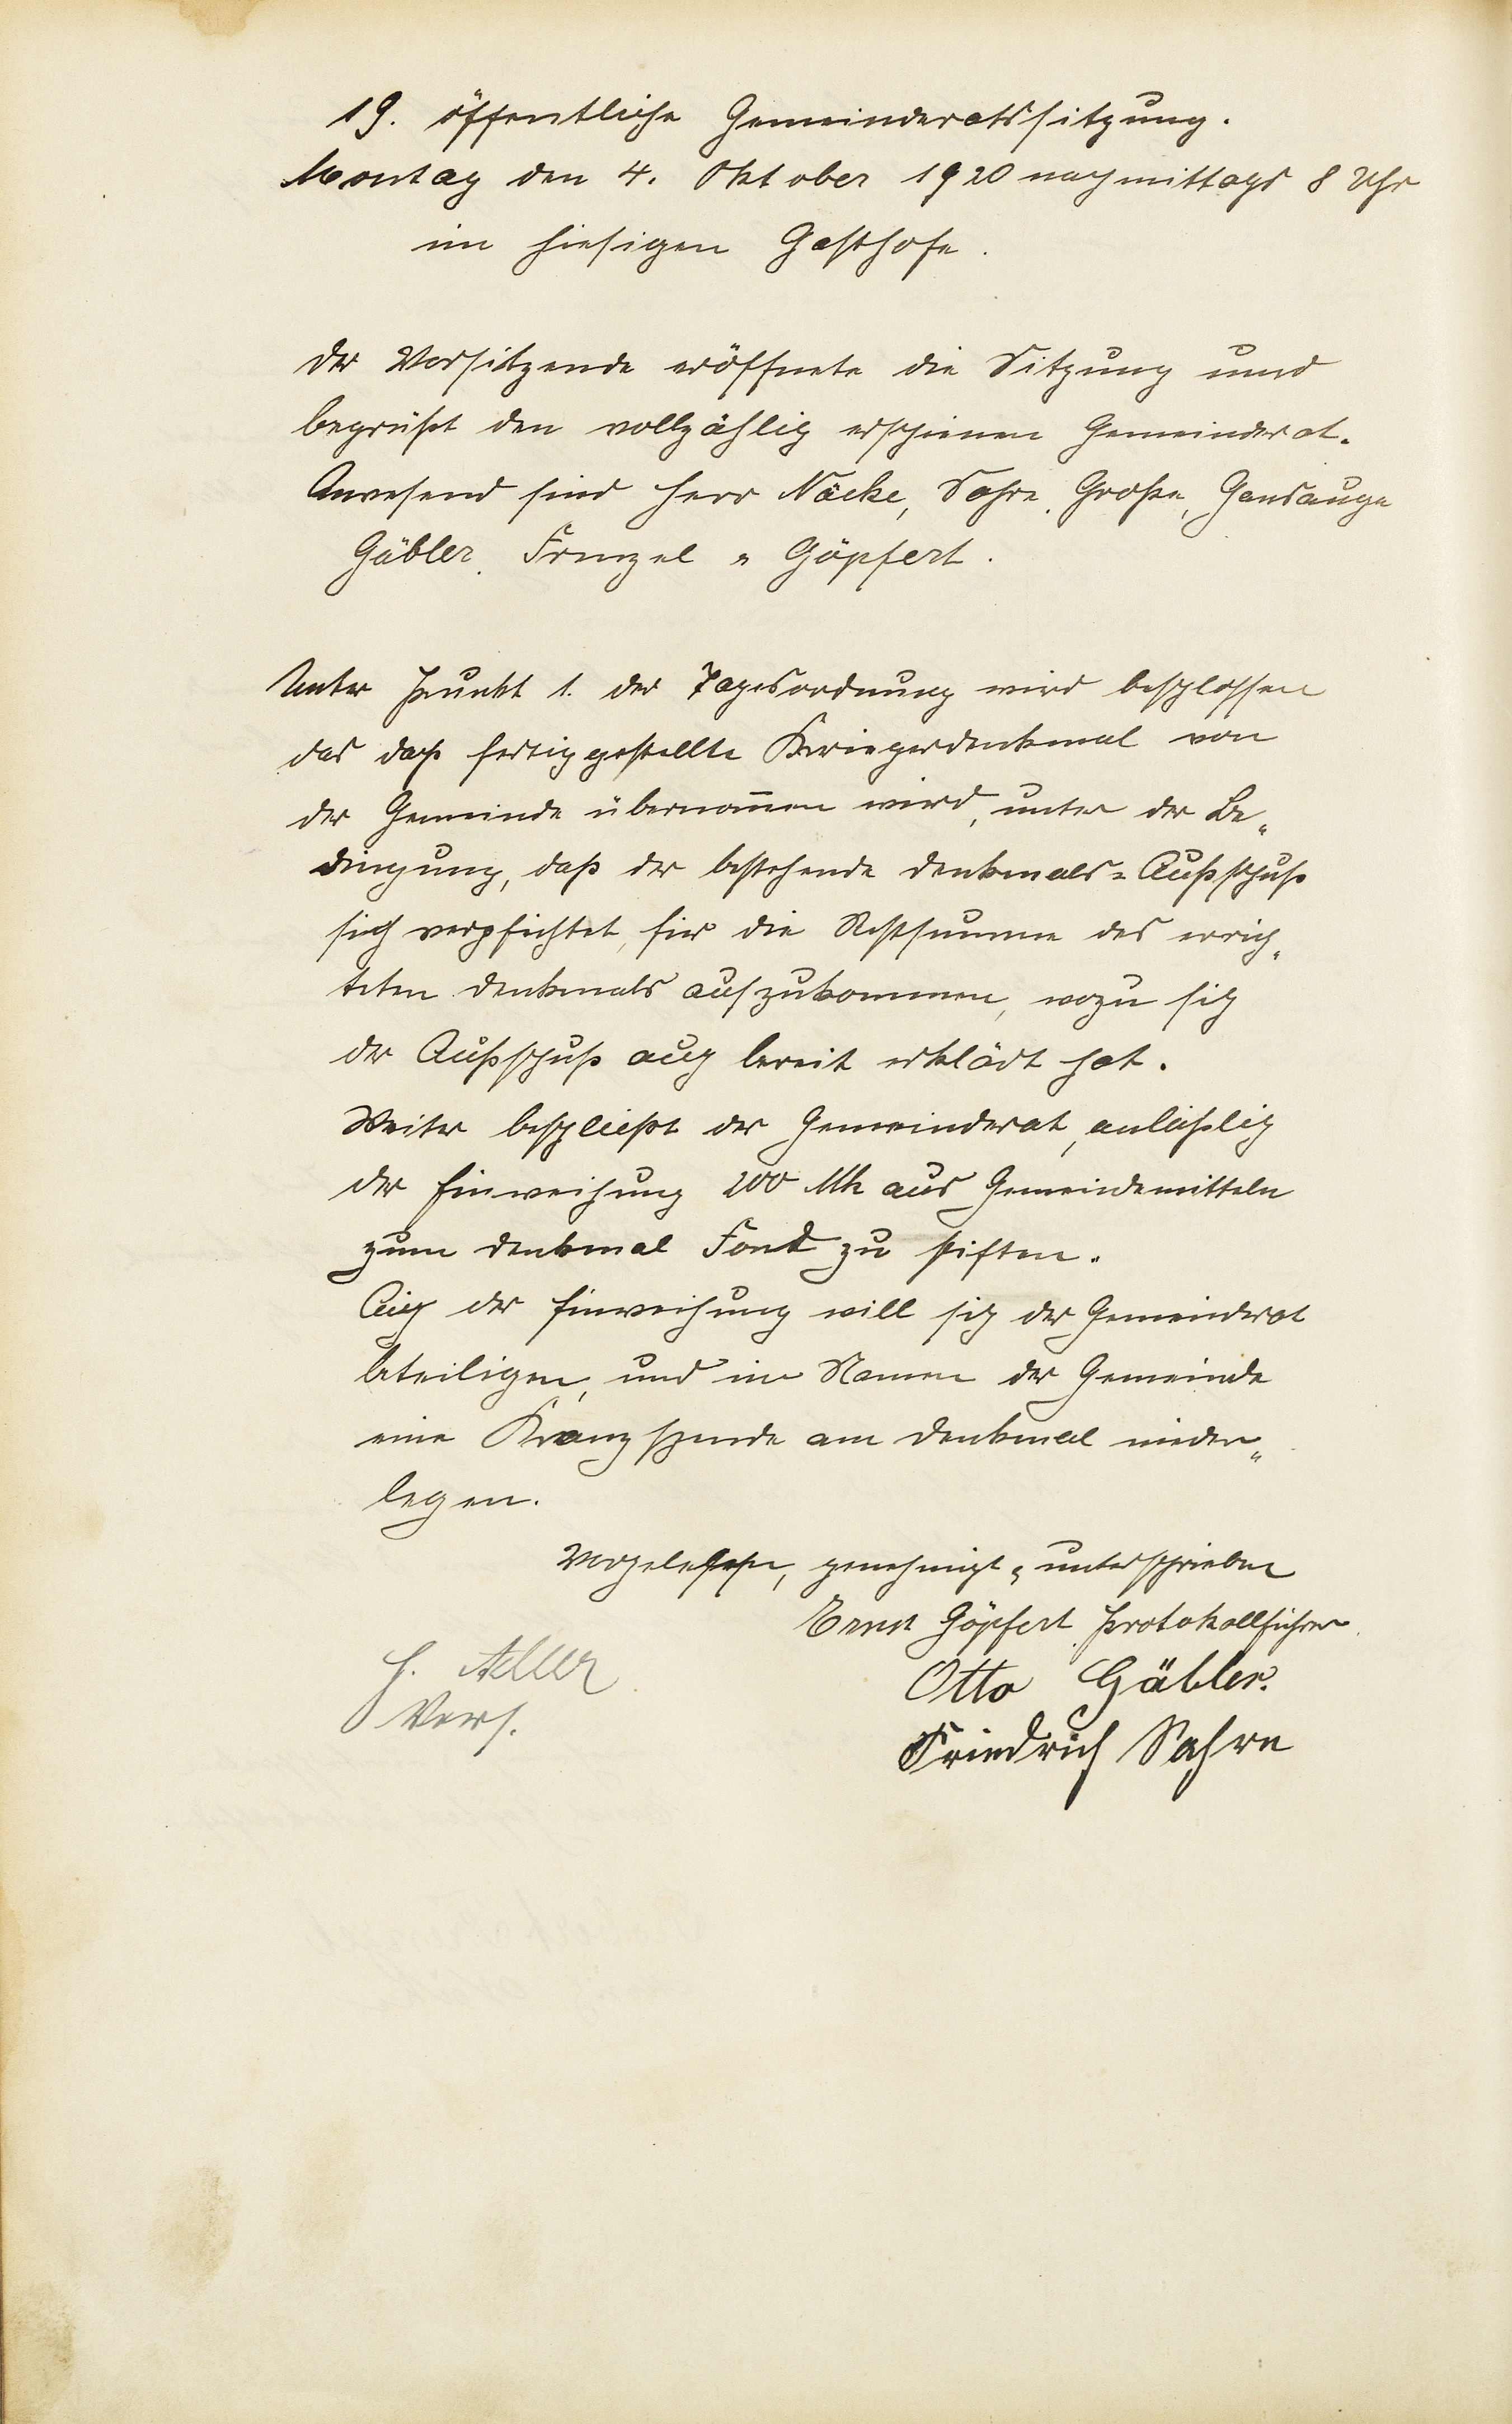 19. öffentliche Gemeinderatssitzung.
Montag den 4. Oktober 1920 nachmittags 8 Uhr
im hiesigen Gasthofe.
Der Vorsitzende eröffnete die Sitzung und
begrüßt den vollzählig erschienen Gemeinderat.
Anwesend sind Herr Näcke, Sahre, Große, Gansauge
Gäbler, Frenzel u Göpfert.
Unter Punkt 1. der Tagesordnung wird beschlossen
das daß fertiggestellte Kriegerdenkmal von
der Gemeinde übernom̅en wird, unter der Be„
dingung, daß der bestehende Denkmals=Außschuß
sich verpfichtet, für die Restsumme des errich„
teten Denkmals aufzukommen, wozu sich
der Außschuß auch bereit erklärt hat.
Weiter beschließt der Gemeinderat, anläßlich
der Einweihung 200 Mk aus Gemeindemitteln
zum Denkmal Fond zu stiften.
An der Einweihung will sich der Gemeinderat
beteiligen, und im Namen der Gemeinde
eine Kranzspende am Denkmal nieder„
legen.
Vorgelesen, genehmigt u unterschrieben
Ernst Göpfert Protokollführer.
H. Adler
Otto Gäbler.
Vors.
Friedrich Sahre